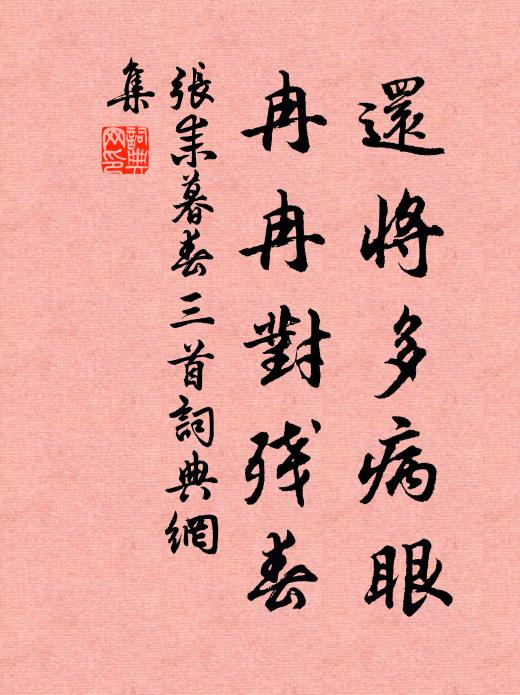 還將多病眼
冉冉對殘春
張耒暮春三首詞典網
集
詞典
網印